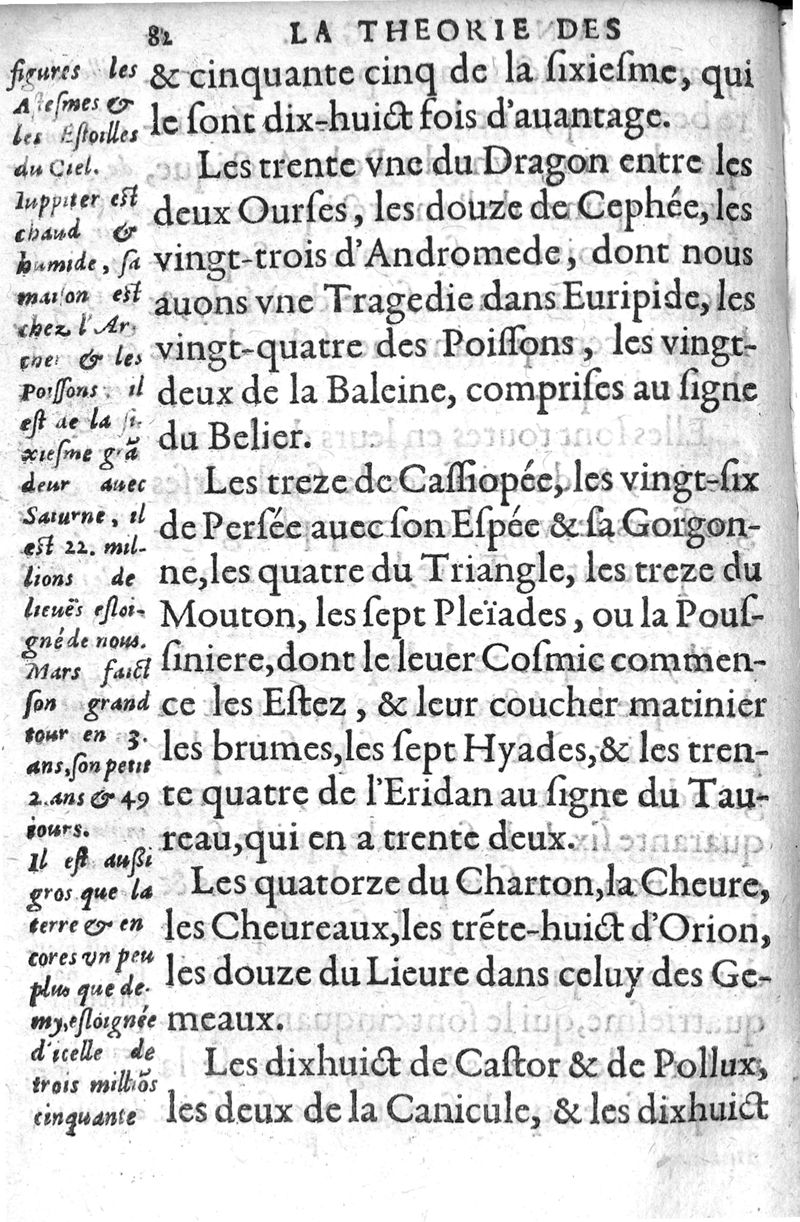 82 LA THEORIE DES
& cinquante cinq de la ſixieſme, qui
le ſont dix-huict fois d'auantage.
Les trente vne du Dragon entre les
deux Ourſes, les douze de Cephée, les
vingt-trois d'Andromede, dont nous
auons vne Tragedie dans Euripide, les
vingt-quatre des Poiſſons, les vingt-
deux de la Baleine, compriſes au ſigne
du Belier.
Les treze de Caſſiopée, les vingt-ſix
de Perſée auec ſon Eſpée & ſa Gorgon-
ne, les quatre du Triangle, les treze du
Mouton, les ſept Pleïades, ou la Pouſ-
ſiniere, dont le leuer Coſmic commen-
ce les Eſtez, & leur coucher matinier
les brumes, les ſept Hyades, & les tren-
te quatre de l'Eridan au ſigne du Tau-
reau, qui en a trente deux.
Les quatorze du Charton, la Cheure,
les Cheureaux, les trẽte-huict d'Orion,
les douze du Lieure dans celuy des Ge-
meaux.
Les dixhuict de Caſtor & de Pollux,
les deux de la Canicule, & les dixhuict
figures les
Aſteſmes &
les Eſtoilles
du Ciel.
Iuppiter eſt
chaud &
humide, ſa
maiſon eſt
chez l'Ar
cher & les
Poiſſons, il
eſt de la ſi-
xieſme grã
deur auec
Saturne, il
eſt 22. mil-
lions de
lieuës eſloi-
gné de nous.
Mars faict
ſon grand
tour en 3.
ans, ſon petit
2. ans & 49
iours.
Il eſt auſſi
gros que la
terre & en
cores vn peu
plus que de-
my, eſloignée
d'icelle de
trois milliõs
cinquante